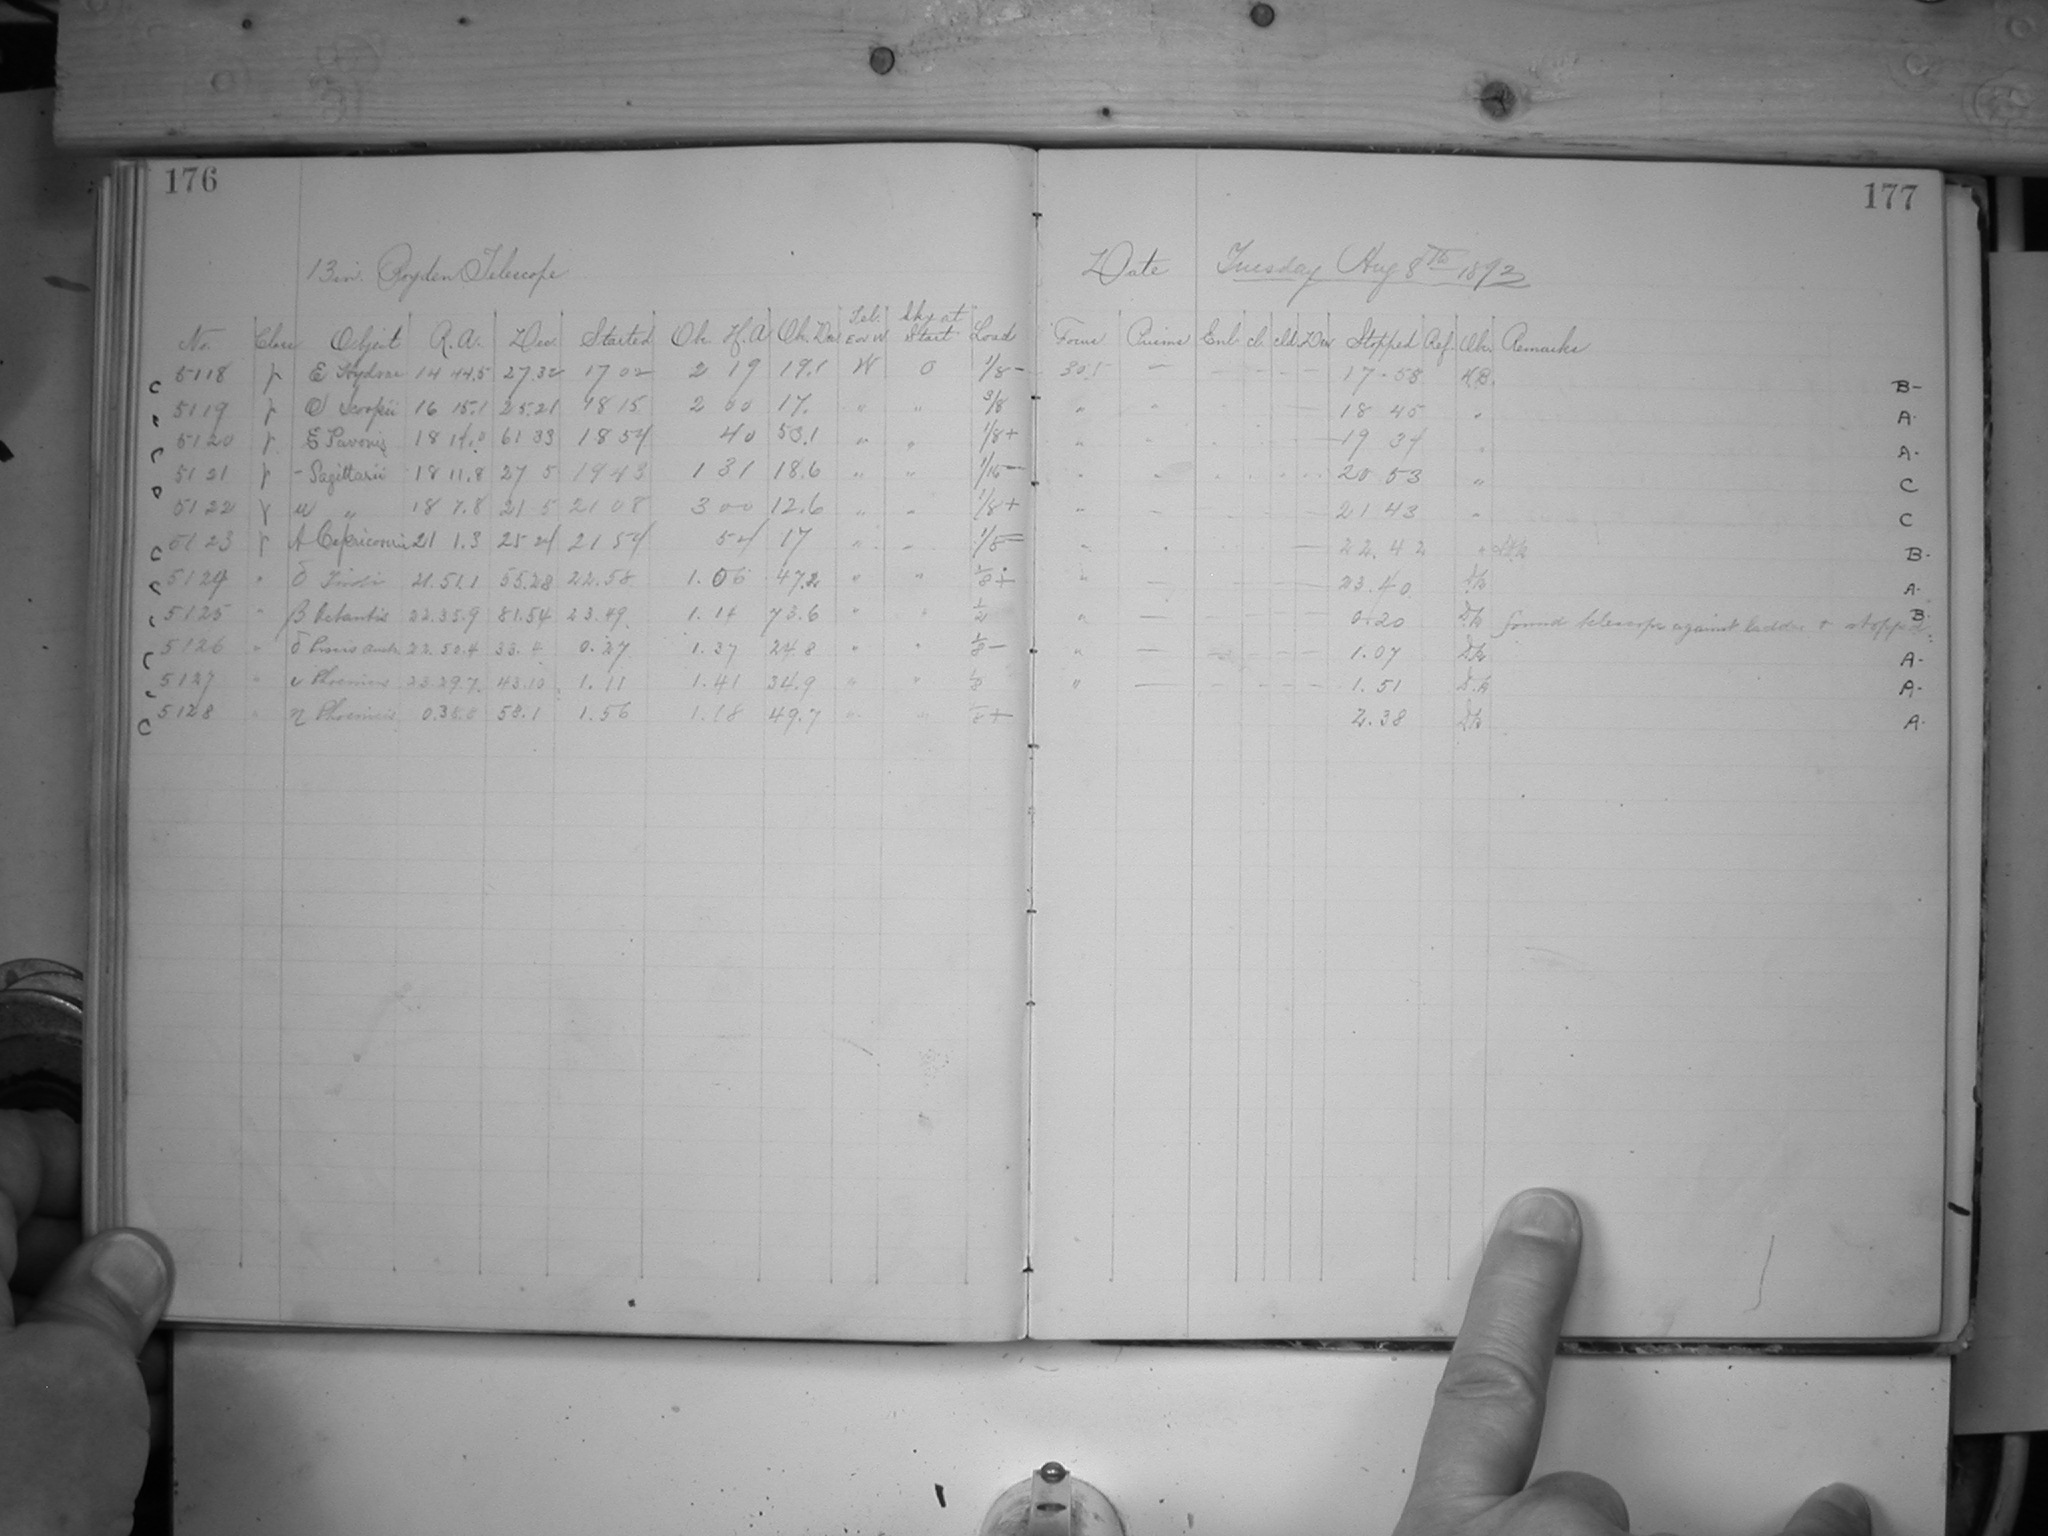 176
177
13 in. Boyden Telescope
Date Tuesday Aug 8th 1893
No. Class Object R.A. Dec. Started Ob. H.A. Ob. Dec. Tel. E or W Sky at Start Load Focus Prisms Enl. cl. Dev Stopped Ref. Ob. Remarks
5118 14 44.5 27 32 17 02 2 19 19.1 W 0 1/8 - 30.5 — 17-58 H.B. B-
5119 Scorpii 16 15.1 25.21 18 15 2 00 17. " " 3/8 " 18 45 " A-
5120 Pavonis 18 14.0 61 33 18 54 40 53.1 " " 1/8 + " 19 34 A-
5121 - Sagittarii 18 11.8 27 5 19 43 1 31 18.6 " " 1/16 — 20 53 " C
5122 " 18 7.8 21 5 21 08 3 00 12.6 " " 1/8 + " 21 43 " C
5123 A Capricorni 21 1.3 25 24 21 54 54 17 " " " 22. 42 " B-
5124 " δ 21.51.1 55.28 22.58 1.06 47.2 " " 1/8 + " — 23.40 A-
5125 " β Octantis 22.35.9 81.54 23.49. 1.14 73.6 " " 1/2 " — 0.20 found telescope against ladder & stopped B
5126 " δ 22.50.4 33.4 0.27 1.37 24.8 " " 1/8 - " — 1.07 A-
5127 " ι Phoenicis 23.29.7 43.10 1.11 1.41 34.9 " " 1/8 " — 1.51 A-
5128 " η Phoenicis 58.1 1.56 1.18 49.7 " " 1/8 + 2.38 A-